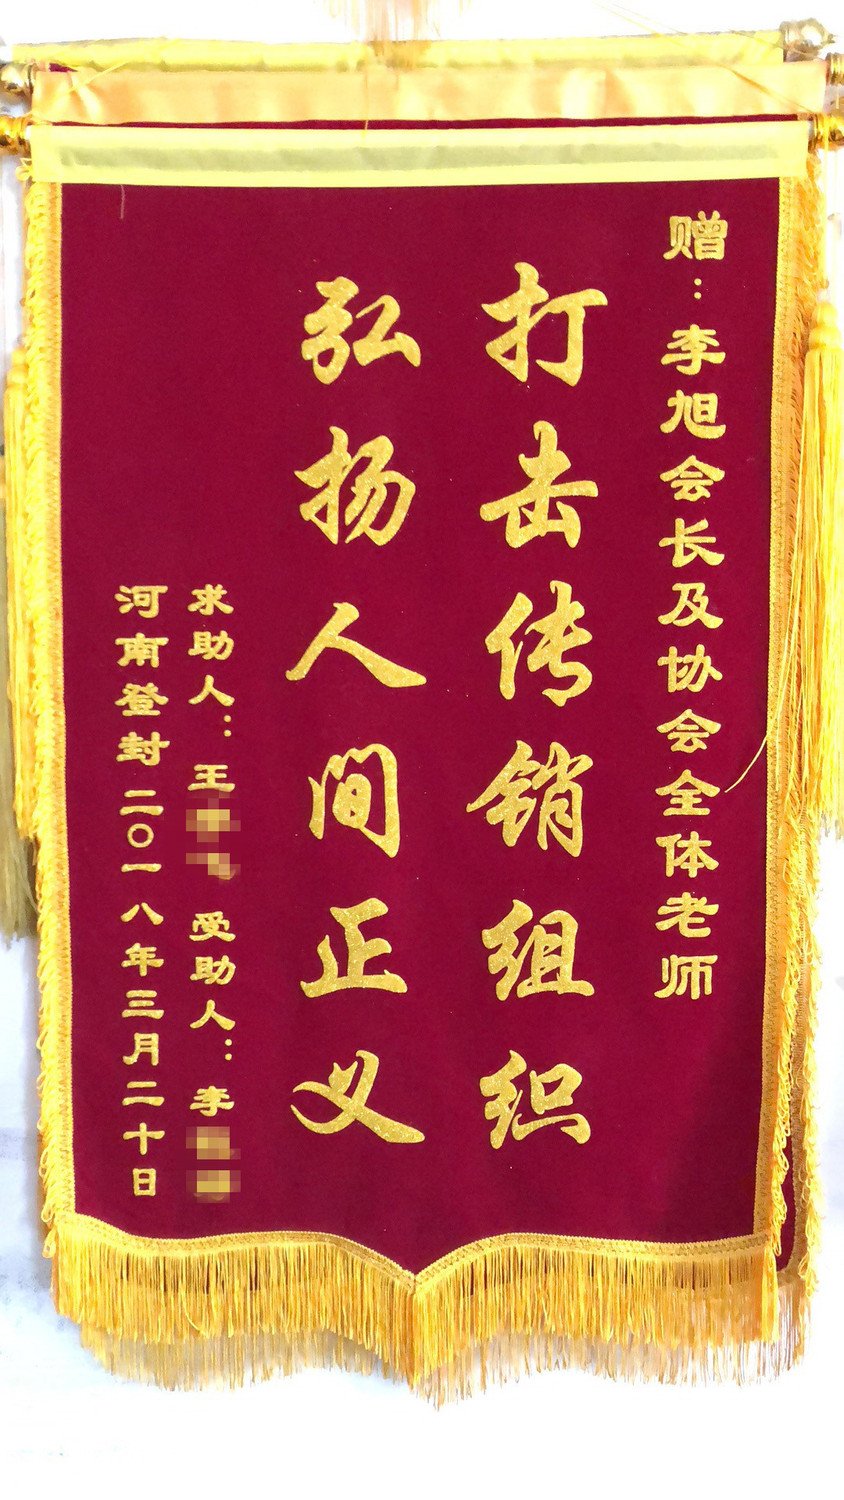 赠：李旭会长及协会全体老师
打击传销组织
弘扬人间正义
求助人：王 受助人：李
河南登封二〇一八年三月二十日